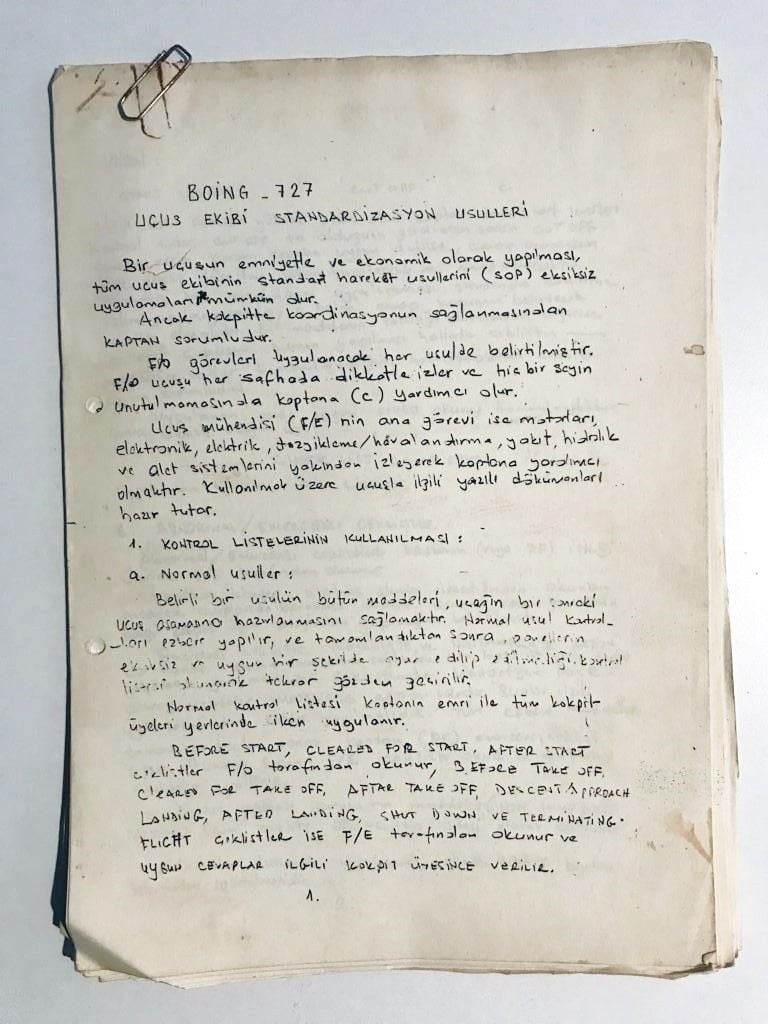 BOİNG - 727
UÇUŞ EKİBİ STANDARDİZASYON USULLERİ
Bir uçuşun emniyetle ve ekonomik olarak yapılması,
tüm uçuş ekibinin standart hareket usullerini (SOP) eksiksiz
uygulamaları mümkün olur.
Ancak kokpitte koordinasyonun sağlanmasından
KAPTAN sorumludur.
F/O görevleri uygulanacak her usulde belirtilmiştir.
F/O uçuşu her safhada dikkatle izler ve hiç bir şeyin
unutulmamasında kaptana (C) yardımcı olur.
Uçuş mühendisi (F/E) nin ana görevi ise motorları,
elektronik, elektrik, tazyikleme/havalandırma, yakıt, hidrolik
ve alet sistemlerini yakından izleyerek kaptana yardımcı
olmaktır. Kullanılmak üzere uçuşla ilgili yazılı dökümanları
hazır tutar.
1. KONTROL LİSTELERİNİN KULLANILMASI :
a. Normal usuller :
Belirli bir usulün bütün maddeleri, uçağın bir sonraki
uçuş aşamasına hazırlanmasını sağlamaktır. Normal usul kontrol-
ları ezbere yapılır, ve tamamlandıktan sonra, panellerin
eksiksiz ve uygun bir şekilde ayar edilip edilmediği kontrol
listesi okunarak tekrar gözden geçirilir.
Normal kontrol listesi kaptanın emri ile tüm kokpit
üyeleri yerlerinde iken uygulanır.
BEFORE START, CLEARED FOR START, AFTER START
çeklistler F/O tarafından okunur, BEFORE TAKE OFF,
CLEARED FOR TAKE OFF, AFTAR TAKE OFF, DESCENT APPROACH
LANDING, AFTER LANDING, SHUT DOWN VE TERMINATING
FLIGHT çeklistler ise F/E tarafından okunur ve
UYGUN CEVAPLAR İLGİLİ KOKPİT ÜYESİNCE VERİLİR.
1.